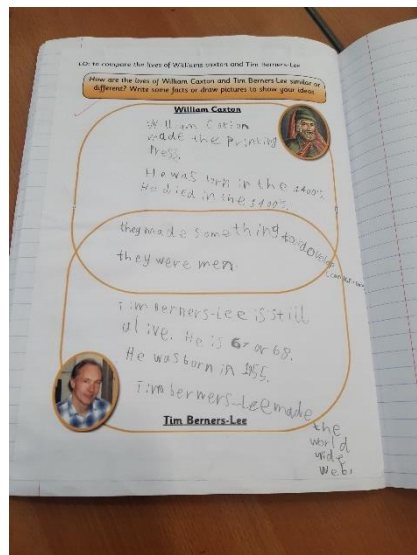 LO: to compare the lives of Williams caxton and Tim Berners-Lee
How are the lives of William Caxton and Tim Berners-Lee similar or
different? Write some facts or draw pictures to show your ideas.
William Caxton
William Caxton
made the printing
Press.
He was born in the 1400s.
He died in the 1400s.
they made something to develop
they were men
Tim Berners-Lee is still
alive. He is 67 or 68.
He was born in 1955.
Tim berners-Lee made
the
world
wide
web.
Tim Berners-Lee